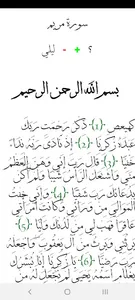 سورة مريم
؟ + - ليلي
بسم الله الرحمن الرحيم
كهيعص ﴿1﴾ ذِكْرُ رَحْمَتِ رَبِّكَ
عَبْدَهُ زَكَرِيَّا ﴿2﴾ إِذْ نَادَى رَبَّهُ نِدَاءً
خَفِيًّا ﴿3﴾ قَالَ رَبِّ إِنِّي وَهَنَ الْعَظْمُ
مِنِّي وَاشْتَعَلَ الرَّأْسُ شَيْبًا وَلَمْ أَكُنْ
بِدُعَائِكَ رَبِّ شَقِيًّا ﴿4﴾ وَإِنِّي خِفْتُ
الْمَوَالِيَ مِنْ وَرَائِي وَكَانَتِ امْرَأَتِي
عَاقِرًا فَهَبْ لِي مِنْ لَدُنْكَ وَلِيًّا ﴿5﴾
يَرِثُنِي وَيَرِثُ مِنْ آلِ يَعْقُوبَ وَاجْعَلْهُ
رَبِّ رَضِيًّا ﴿6﴾ يَا زَكَرِيَّا إِنَّا نُبَشِّرُكَ
بِغُلَامٍ اسْمُهُ يَحْيَى لَمْ نَجْعَلْ لَهُ مِنْ